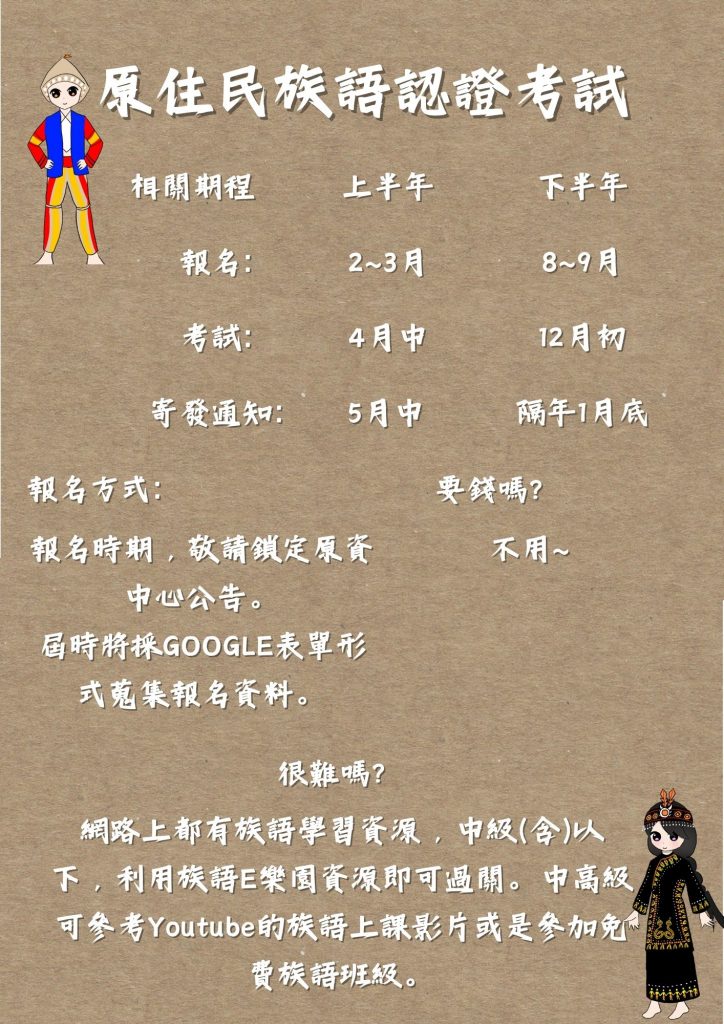 原住民族語認證考試
相關期程 上半年 下半年
報名: 2~3月 8~9月
考試: 4月中 12月初
寄發通知: 5月中 隔年1月底
報名方式:
報名時期，敬請鎖定原資
中心公告。
屆時將採GOOGLE表單形
式蒐集報名資料。
要錢嗎?
不用~
很難嗎?
網路上都有族語學習資源，中級(含)以
下，利用族語E樂園資源即可過關。中高級
可參考Youtube的族語上課影片或是參加免
費族語班級。